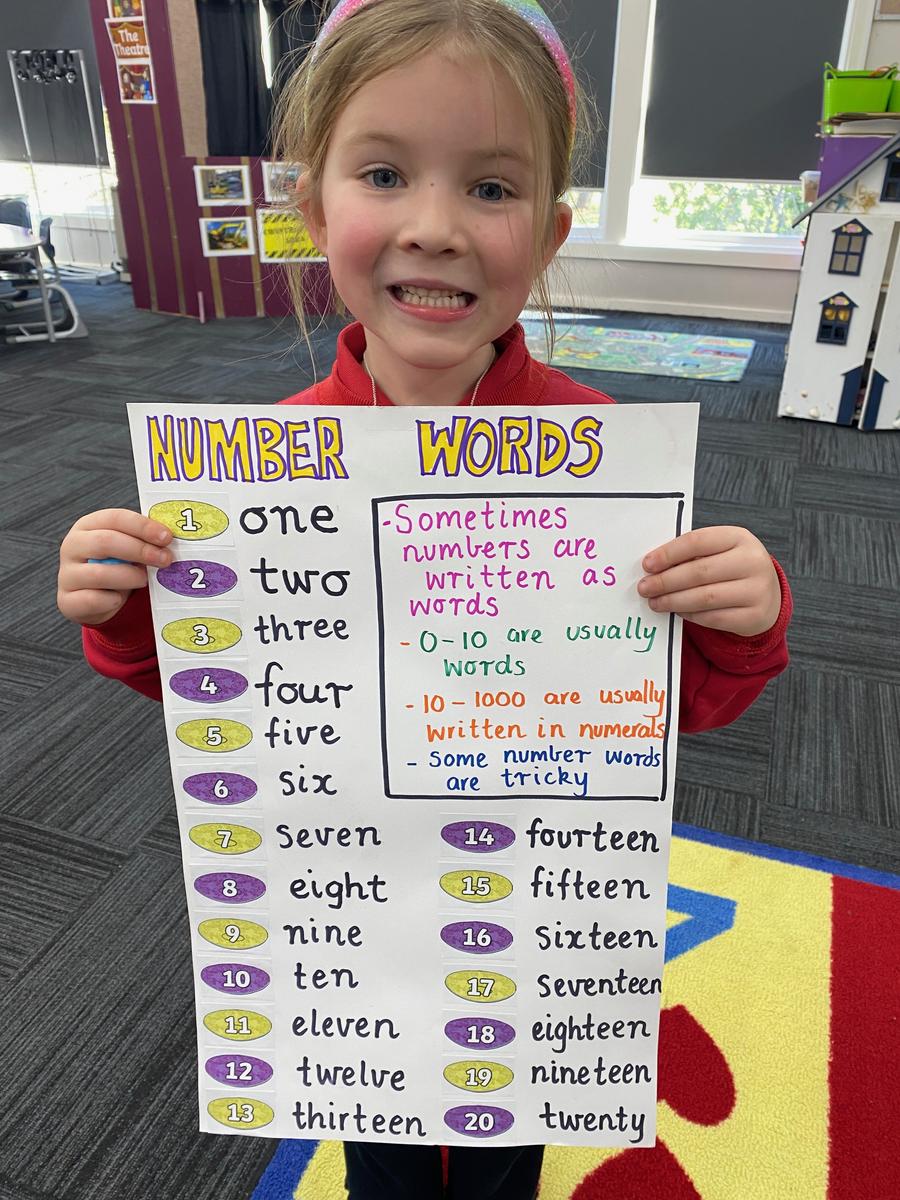 The
Theatre
NUMBER WORDS
1 one
2 two
3 three
4 four
5 five
6 six
7 seven
8 eight
9 nine
10 ten
11 eleven
12 twelve
13 thirteen
-Sometimes
numbers are
written as
words
- 0-10 are usually
words
- 10 - 1000 are usually
written in numerals
- Some number words
are tricky
14 fourteen
15 fifteen
16 sixteen
17 seventeen
18 eighteen
19 nineteen
20 twenty